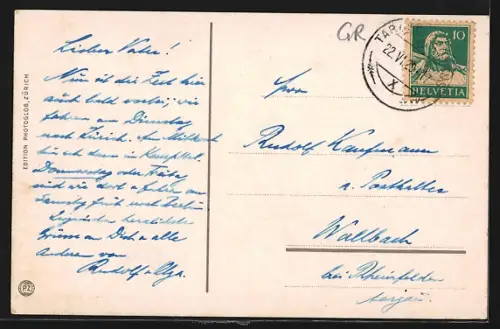 Lieber Vater!
Nun ist die Zeit hier
auch bald vorbei, wir
fahren am Dienstag
nach Zürich. Am Mittwoch
bin ich dann in
Donnerstag oder Freitag
sind wir dort & fahren am
Samstag früh nach
herzlichste
Grüsse an Dich & alle
Anderen von
Rudolf & Olga.
EDITION PHOTOGLOB, ZÜRICH
PZ
GR
TARASP
22.VI.
X
10
HELVETIA
Herrn
Rudolf Kaufmann
z. Posthalter
Wallbach
bei Rheinfelden
Aargau.